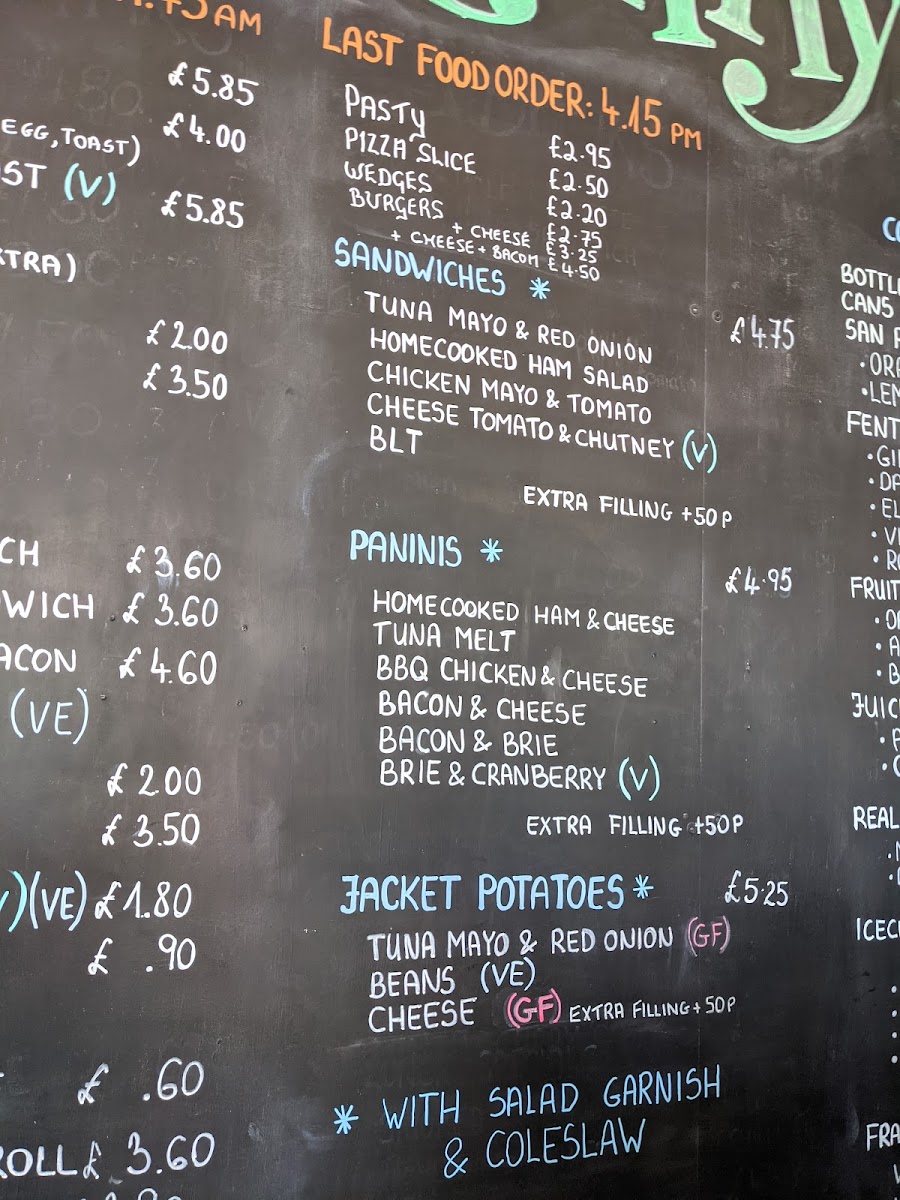 AM
£5.85
£4.00
EGG, TOAST)
(V)
£5.85
£2.00
£3.50
£3.60
£3.60
£4.60
(VE)
£2.00
£3.50
(VE) £1.80
£ .90
£ .60
ROLL £ 3.60
LAST FOOD ORDER: 4.15 PM
PASTY £2.95
PIZZA SLICE £2.50
WEDGES £2.20
BURGERS £2.75
+ CHEESE £3.25
+ CHEESE + BACON £4.50
SANDWICHES *
£4.75
TUNA MAYO & RED ONION
HOMECOOKED HAM SALAD
CHICKEN MAYO & TOMATO
CHEESE TOMATO & CHUTNEY (V)
BLT
EXTRA FILLING +50P
PANINIS *
£4.95
HOMECOOKED HAM & CHEESE
TUNA MELT
BBQ CHICKEN & CHEESE
BACON & CHEESE
BACON & BRIE
BRIE & CRANBERRY (V)
EXTRA FILLING +50P
JACKET POTATOES * £5.25
TUNA MAYO & RED ONION (GF)
BEANS (VE)
CHEESE (GF) EXTRA FILLING + 50P
* WITH SALAD GARNISH
& COLESLAW
CANS
SAN
REAL